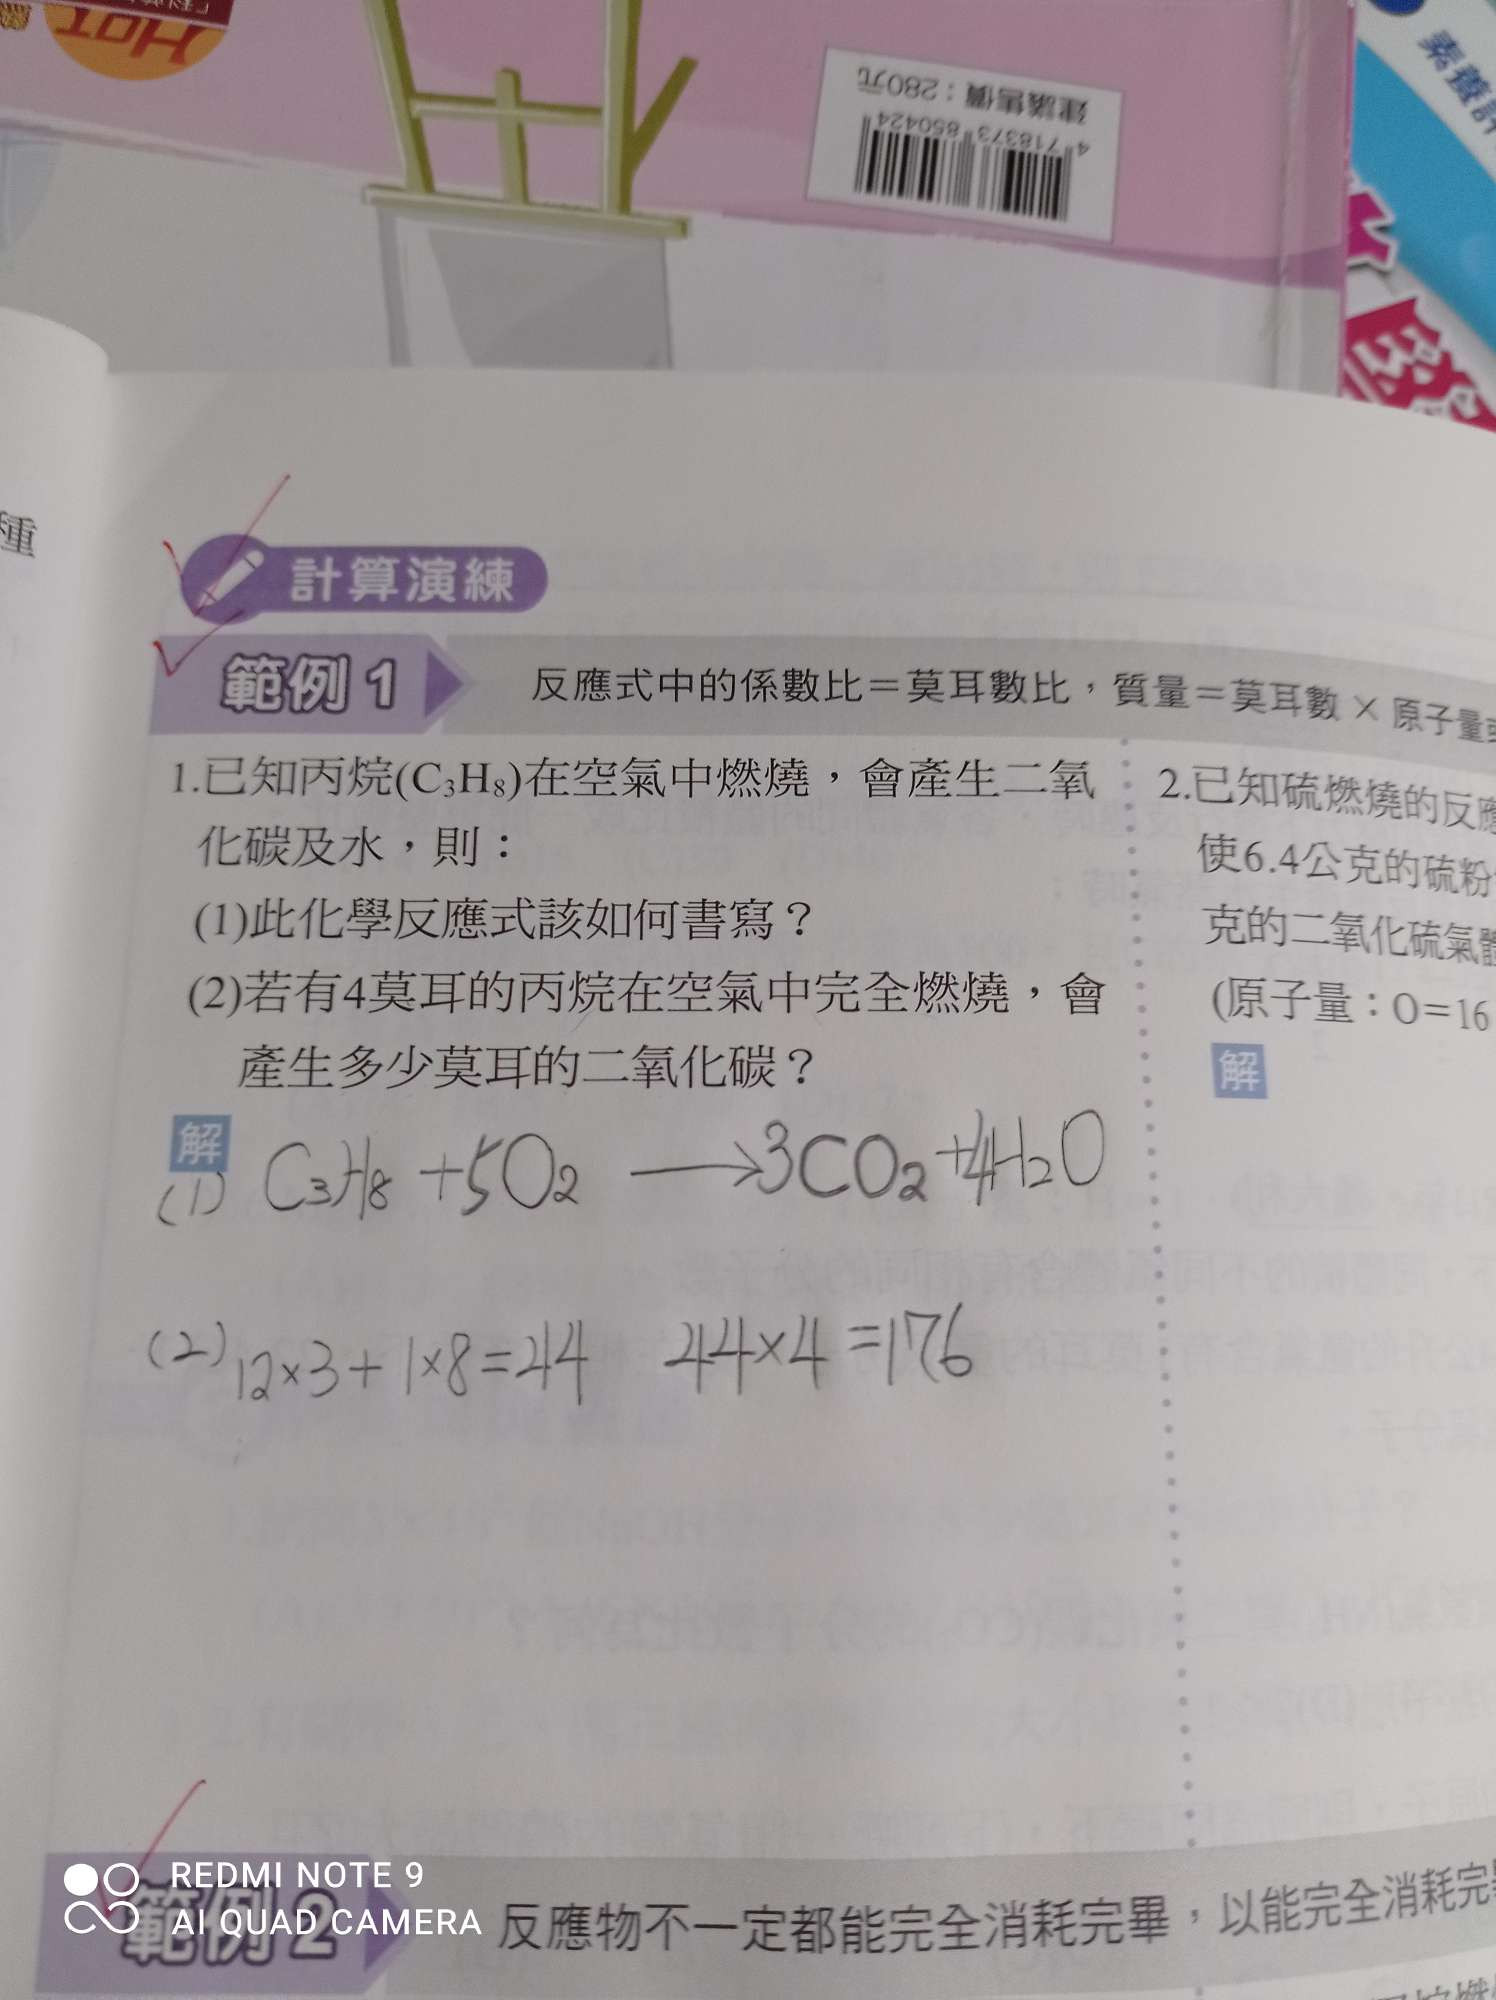 HOT
建議售價：280元
4 718373 850424
素養評
種
計算演練
範例 1 反應式中的係數比＝莫耳數比，質量＝莫耳數 × 原子量
1.已知丙烷(C₃H₈)在空氣中燃燒，會產生二氧
化碳及水，則：
(1)此化學反應式該如何書寫？
(2)若有4莫耳的丙烷在空氣中完全燃燒，會
產生多少莫耳的二氧化碳？
解
(1) C₃H₈ +5O₂ ⟶3CO₂+4H₂O
(2) 12×3+1×8=44 44×4=176
2.已知硫燃燒的反應
使6.4公克的硫粉
克的二氧化硫氣體
(原子量：O=16
解
範例 2 反應物不一定都能完全消耗完畢，以能完全消耗完
REDMI NOTE 9
AI QUAD CAMERA